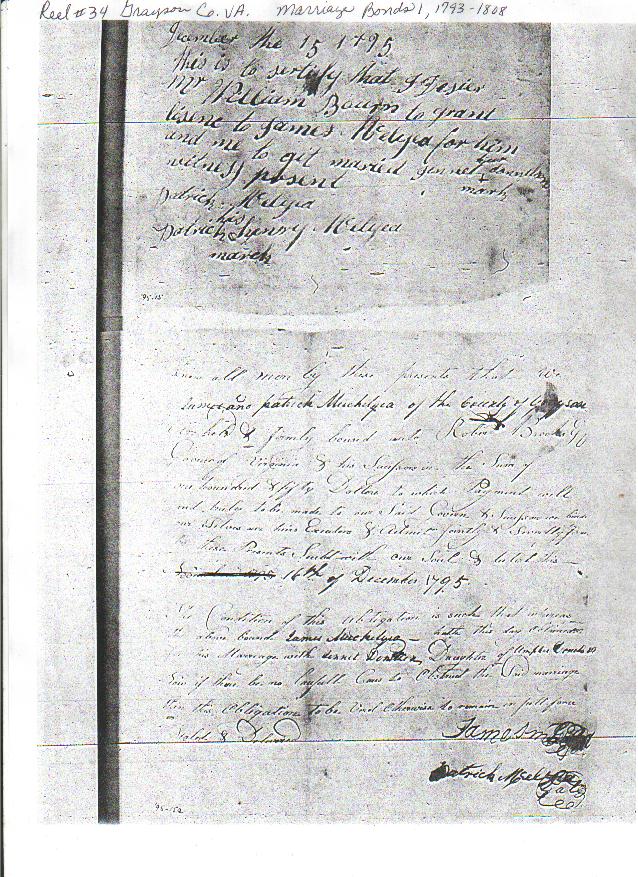 Reel #34 Grayson Co. VA. Marriage Bonds 1, 1793-1808
December the 15 1795
this is to sertify that I Desier
Mr William Bourn to grant
lisene to James Mclyea for him
and me to git maried gennet
witness present
mark
Patrick Mclyea
his
Patrick Henry Mclyea
mark
95-15
Know all men by these presents that we
James and patrick Muckelyea of the County of Grayson
are held & firmly bound unto Robert Brooke
Governor of Virginia & his Successors in the Sum of
one hundred & fifty Dollars to which Payment well
and truly to be made to our Said Govern & Successors we bind
our Selves our hiers Executors & Admrs Jointly & Severally firmly
by these Presents Seald with our Seal & dated this
16th of December 1795
The Condition of this Obligation is such that whereas
the above bound James Muckelyea hath this day obtained
for his Marriage with Jennet Daughter of
Now if there be no lawfull Caus to Obstruct the Said marriage
then this Obligation to be Void Otherwise to remain in full force
Seald & Delivered
James
Patrick Mcelyea
95-152